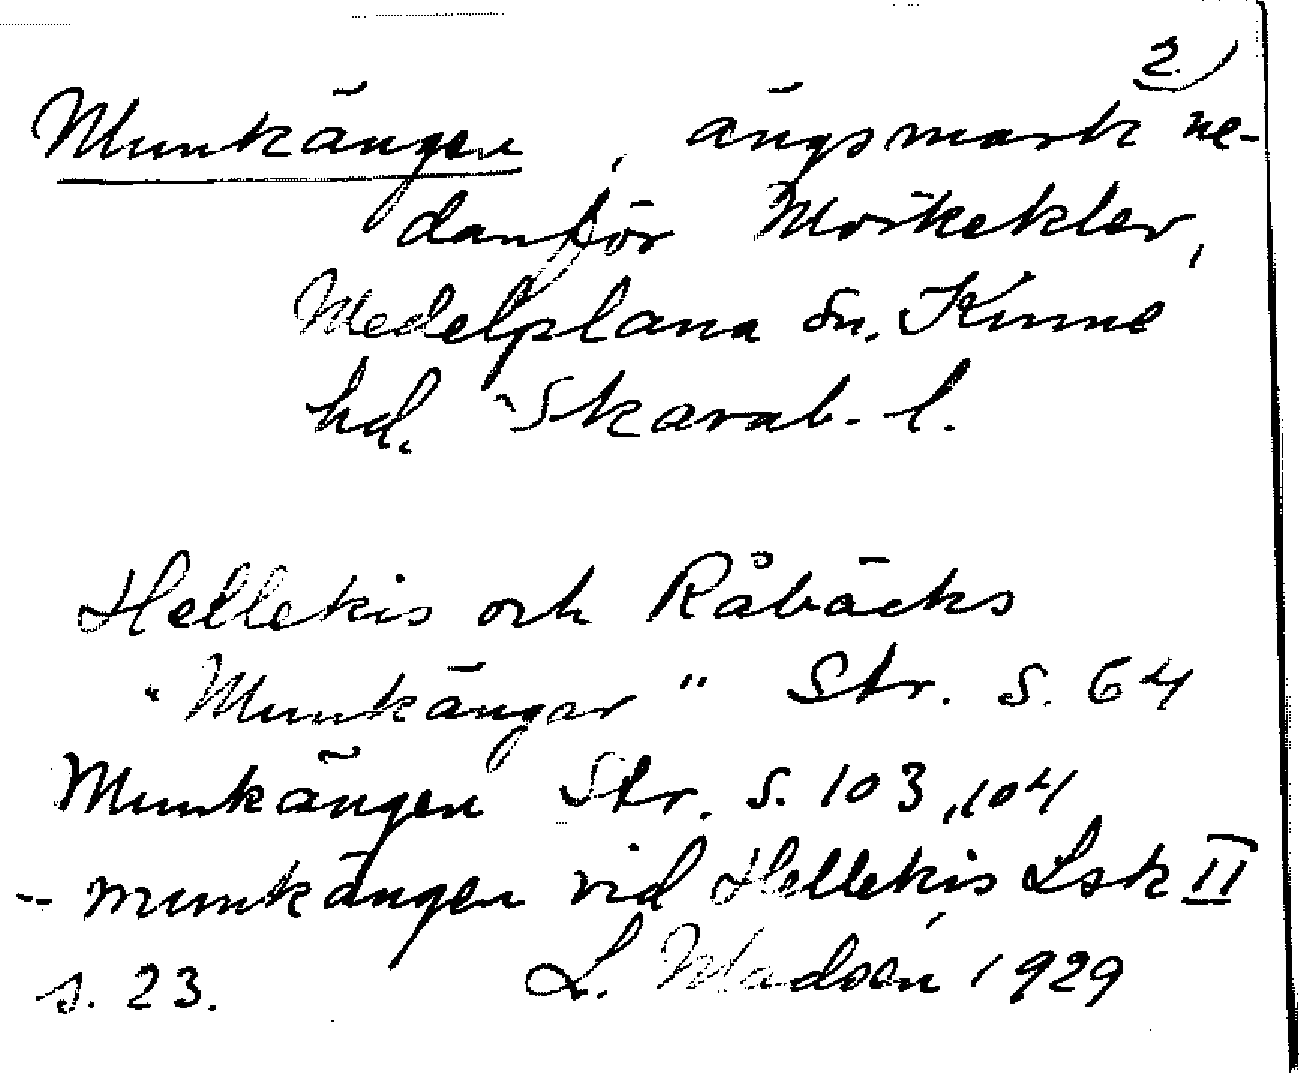 2.)
Munkängen, ängsmark ne-
danför Mörkeklev,
Medelplana sn. Kinne
hd. Skarab. l.
Hellekis och Råbäcks
"Munkängar" Str. s. 64
Munkängen Str. s. 103, 104
-- munkängen vid Hellekis Lsk II
s. 23. L. Madsén 1929